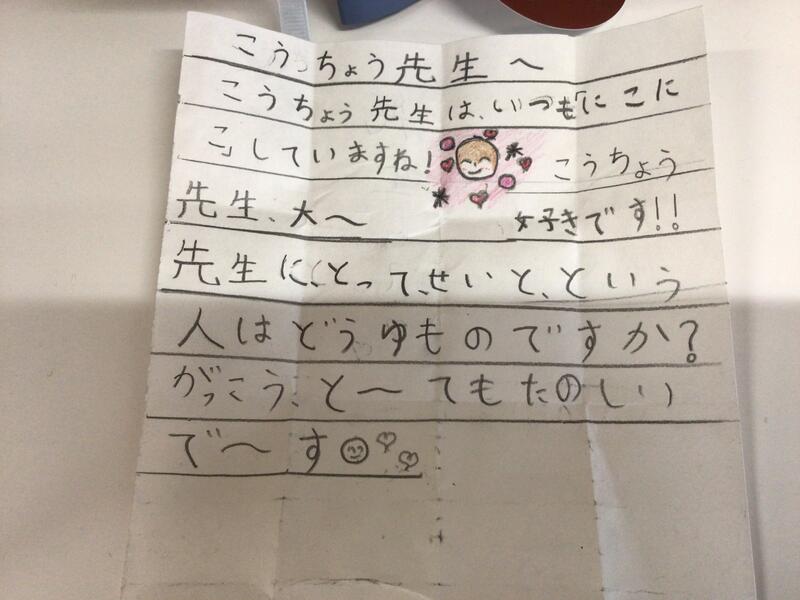 こうっちょう先生へ
こうちょう先生は、いつもにこに
こしていますね!
こうちょう
先生、大〜好きです!!
先生に、とって、せいと、という
人はどうゆものですか?
がっこう、と〜てもたのしい
で〜す